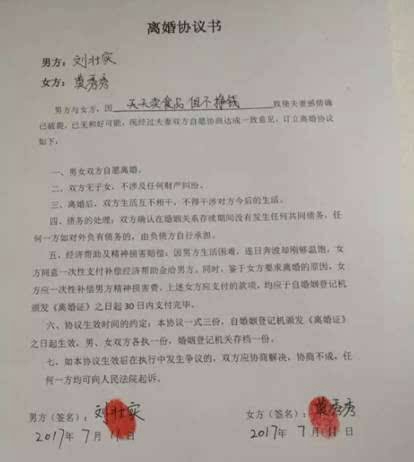 离婚协议书
男方：刘壮实
女方：黄秀秀
男方与女方，因 天天卖食品 但不挣钱 致使夫妻感情确
已破裂，已无和好可能，现经过夫妻双方自愿协商达成一致意见，订立离婚协议
如下：
一、男女双方自愿离婚。
二、双方无子女，不涉及任何财产纠纷。
三、离婚后，双方生活互不相干，不得干涉对方今后的生活。
四、债务的处理：双方确认在婚姻关系存续期间没有发生任何共同债务，任
何一方如对外负有债务的，由负债方自行承担。
五、经济帮助及精神损害赔偿：因男方生活困难，连日奔波却刚够温饱，女
方同意一次性支付补偿经济帮助金给男方。同时，鉴于女方要求离婚的原因，女
方应一次性补偿男方精神损害费。上述女方应支付的款项，均应于自婚姻登记机
颁发《离婚证》之日起30日内支付完毕。
六、协议生效时间的约定：本协议一式三份，自婚姻登记机颁发《离婚证》
之日起生效，男、女双方各执一份，婚姻登记机关存档一份。
七、如本协议生效后在执行中发生争议的，双方应协商解决，协商不成，任
何一方均可向人民法院起诉。
男方（签名）：刘壮实 女方（签名）：黄秀秀
2017年 7月 11日 2017年 7月 11日